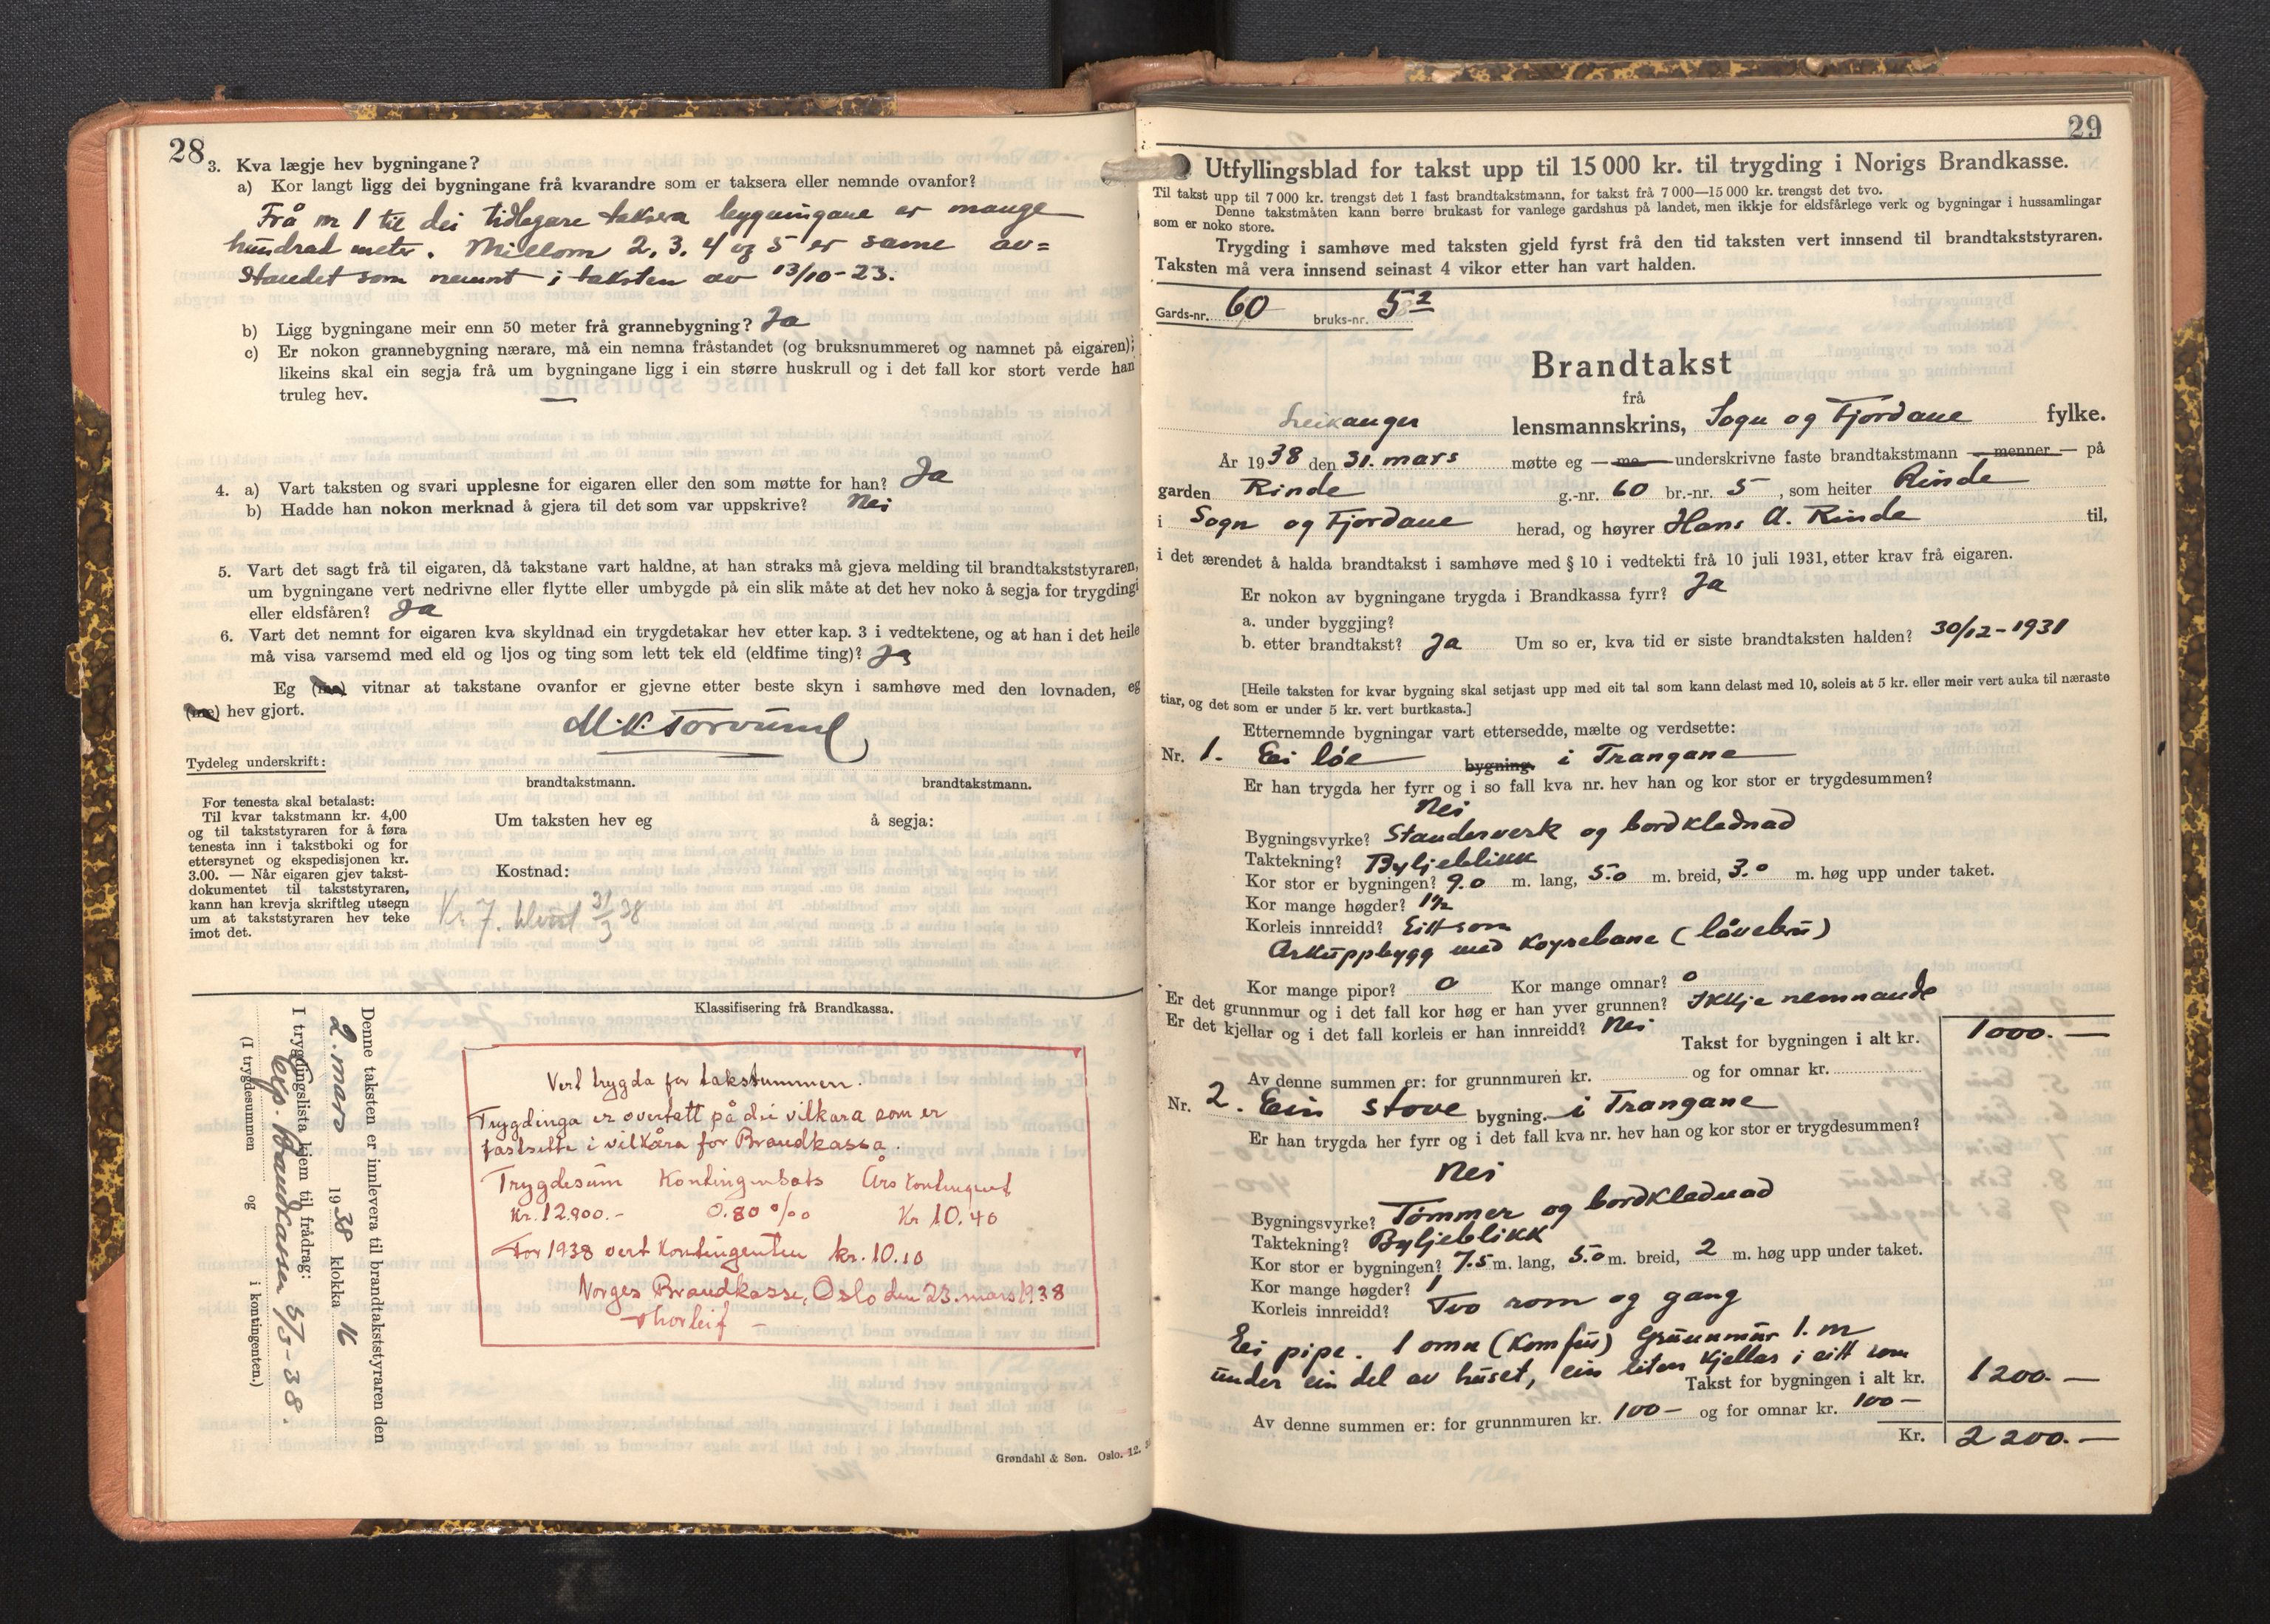 28
3. Kva lægje hev bygningane?
a) Kor langt ligg dei bygningane frå kvarandre som er taksera eller nemnde ovanfor?
Frå nr 1 til dei tidlegare taksera bygningane er mange
hundrad meter. Millom 2, 3, 4 og 5 er same av=
standet som nemnt i taksten av 13/10-23.
b) Ligg bygningane meir enn 50 meter frå grannebygning? Ja
c) Er nokon grannebygning nærare, må ein nemna fråstandet (og bruksnummeret og namnet på eigaren);
likeins skal ein segja frå um bygningane ligg i ein større huskrull og i det fall kor stort verde han
truleg hev. —
4. a) Vart taksten og svari upplesne for eigaren eller den som møtte for han? Ja
b) Hadde han nokon merknad å gjera til det som var uppskrive? Nei
5. Vart det sagt frå til eigaren, då takstane vart haldne, at han straks må gjeva melding til brandtakststyraren,
um bygningane vert nedrivne eller flytte eller umbygde på ein slik måte at det hev noko å segja for trygdingi
eller eldsfåren? Ja
6. Vart det nemnt for eigaren kva skyldnad ein trygdetakar hev etter kap. 3 i vedtektene, og at han i det heile
må visa varsemd med eld og ljos og ting som lett tek eld (eldfime ting)? Ja
Eg (me) vitnar at takstane ovanfor er gjevne etter beste skyn i samhøve med den lovnaden, eg
(me) hev gjort.
M.K. Torvund
Tydeleg underskrift:
brandtakstmann. brandtakstmann.
For tenesta skal betalast:
Til kvar takstmann kr. 4,00
og til takststyraren for å føra
tenesta inn i takstboki og for
ettersynet og ekspedisjonen kr.
3.00. — Når eigaren gjev takst-
dokumentet til takststyraren,
kann han krevja skriftleg utsegn
um at takststyraren hev teke
imot det.
Um taksten hev eg å segja:
Kostnad:
Kr 7. 31/3 38
Klassifisering frå Brandkassa.
Vert trygda for takstsummen.
Trygdinga er overtatt på dei vilkåra som er
fastsette i vilkåra for Brandkassa.
Trygdesum Kontingentsats Års kontingent
Kr. 12.900.- 0.80 o/oo Kr 10.40
For 1938 vert kontingenten kr. 10.10
Norges Brandkasse, Oslo den 23. mars 1938
Thorleif —
Denne taksten er innlevera til brandtakststyraren den
2. mars 1938 klokka 16
I trygdingslista kjem til frådrag:
Exp. Brandkassen 5/3-38.
(I trygdesummen og i kontingenten.)
Grøndahl & Søn. Oslo. 12.
29
Utfyllingsblad for takst upp til 15 000 kr. til trygding i Norigs Brandkasse.
Til takst upp til 7 000 kr. trengst det 1 fast brandtakstmann, for takst frå 7 000—15 000 kr. trengst det tvo.
Denne takstmåten kann berre brukast for vanlege gardshus på landet, men ikkje for eldsfårlege verk og bygningar i hussamlingar
som er noko store.
Trygding i samhøve med taksten gjeld fyrst frå den tid taksten vert innsend til brandtakststyraren.
Taksten må vera innsend seinast 4 vikor etter han vart halden.
Gards-nr. 60 bruks-nr. 5²
Brandtakst
frå
Leikanger lensmannskrins, Sogn og Fjordane fylke.
År 1938 den 31. mars møtte eg — me — underskrivne faste brandtakstmann — menner — på
garden Rinde g.-nr. 60 br.-nr. 5, som heiter Rinde
i Sogn og Fjordane herad, og høyrer Hans A. Rinde til,
i det ærendet å halda brandtakst i samhøve med § 10 i vedtekti frå 10 juli 1931, etter krav frå eigaren.
Er nokon av bygningane trygda i Brandkassa fyrr? Ja
a. under byggjing?
b. etter brandtakst? Ja Um so er, kva tid er siste brandtaksten halden? 30/12-1931
[Heile taksten for kvar bygning skal setjast upp med eit tal som kann delast med 10, soleis at 5 kr. eller meir vert auka til næraste
tiar, og det som er under 5 kr. vert burtkasta.]
Etternemnde bygningar vart ettersedde, mælte og verdsette:
Nr. 1. Ei løe bygning. i Trangane
Er han trygda her fyrr og i so fall kva nr. hev han og kor stor er trygdesummen?
Nei
Bygningsvyrke? Standerverk og bordklednad
Taktekning? Byljeblikk
Kor stor er bygningen? 9.0 m. lang, 5.0 m. breid, 3.0 m. høg upp under taket.
Kor mange høgder? 1½
Korleis innreidd? Eitt rom
Arkuppbygg med køyrebane (låvebru)
Kor mange pipor? 0 Kor mange omnar? 0
Er det grunnmur og i det fall kor høg er han yver grunnen? Ikkje nemnande
Er det kjellar og i det fall korleis er han innreidd? Nei
Takst for bygningen i alt kr. 1000.—
Av denne summen er: for grunnmuren kr. og for omnar kr.
Nr. 2. Ein stove bygning. i Trangane
Er han trygda her fyrr og i det fall kva nr. hev han og kor stor er trygdesummen?
Nei
Bygningsvyrke? Tømmer og bordklednad
Taktekning? Byljeblikk
Kor stor er bygningen? 7.5 m. lang, 5.0 m. breid, 2 m. høg upp under taket.
Kor mange høgder? 1
Korleis innreidd? Tvo rom og gang
Ei pipe. 1 omn (Komfür) Grunnmur 1. m
under ein del av huset, ein liten kjellar i eitt rom
Takst for bygningen i alt kr. 1200.—
Av denne summen er: for grunnmuren kr. 100— og for omnar kr. 100—
Kr. 2200.—